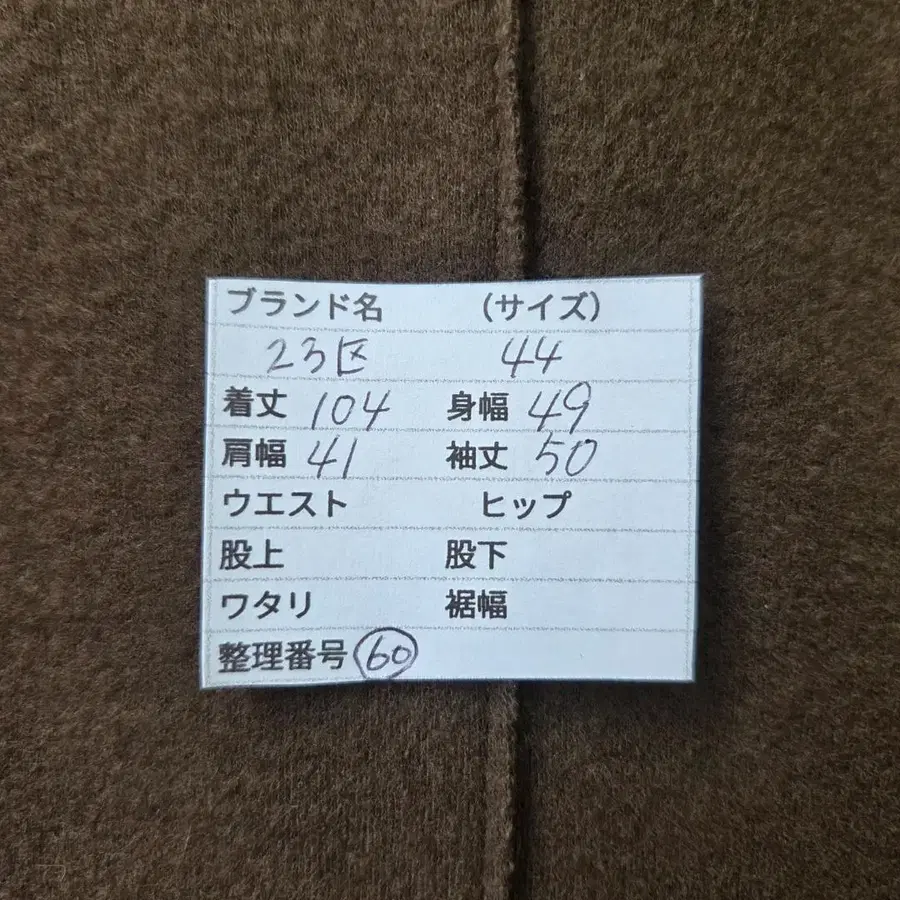 ブランド名 (サイズ)
23区 44
着丈 104 身幅 49
肩幅 41 袖丈 50
ウエスト ヒップ
股上 股下
ワタリ 裾幅
整理番号 60